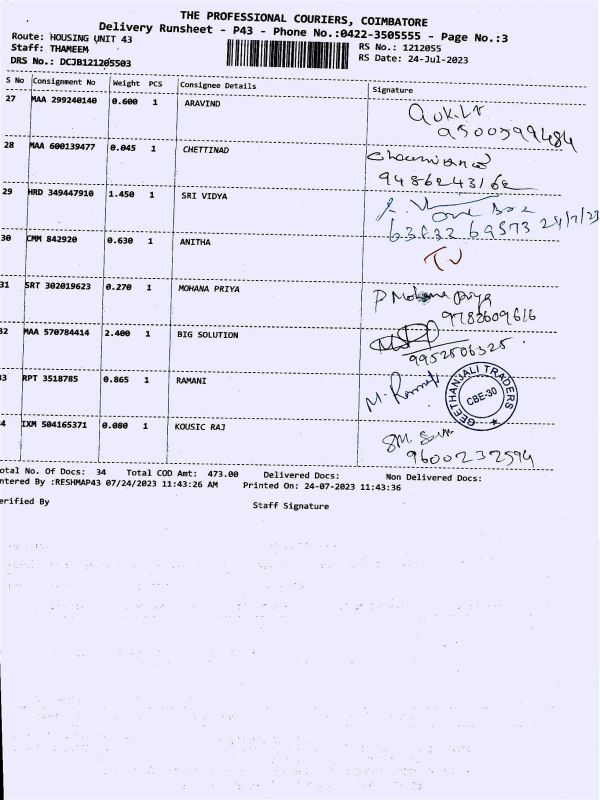 THE PROFESSIONAL COURIERS, COIMBATORE
Delivery Runsheet - P43 - Phone No.:0422-3505555 - Page No.:3
Route: HOUSING UNIT 43
RS No.: 1212055
Staff: THAMEEM
RS Date: 24-Jul-2023
DRS No.: DCJB121205503
S No Consignment No Weight PCS Consignee Details Signature
27 MAA 299240140 0.600 1 ARAVIND
9500399484
28 MAA 600139477 0.045 1 CHETTINAD
9486243162
29 HRD 349447910 1.450 1 SRI VIDYA
one Box
63832 69573 24/7/23
30 CMM 842920 0.630 1 ANITHA
31 SRT 302019623 0.270 1 MOHANA PRIYA P Mohana Priya
9782609616
32 MAA 570784414 2.400 1 BIG SOLUTION
9952506325
33 RPT 3518785 0.865 1 RAMANI M. Ramani
GEETHANJALI TRADERS
CBE-30
34 IXM 504165371 0.080 1 KOUSIC RAJ
9600232594
otal No. Of Docs: 34 Total COD Amt: 473.00 Delivered Docs: Non Delivered Docs:
ntered By :RESHMAP43 07/24/2023 11:43:26 AM Printed On: 24-07-2023 11:43:36
erified By Staff Signature